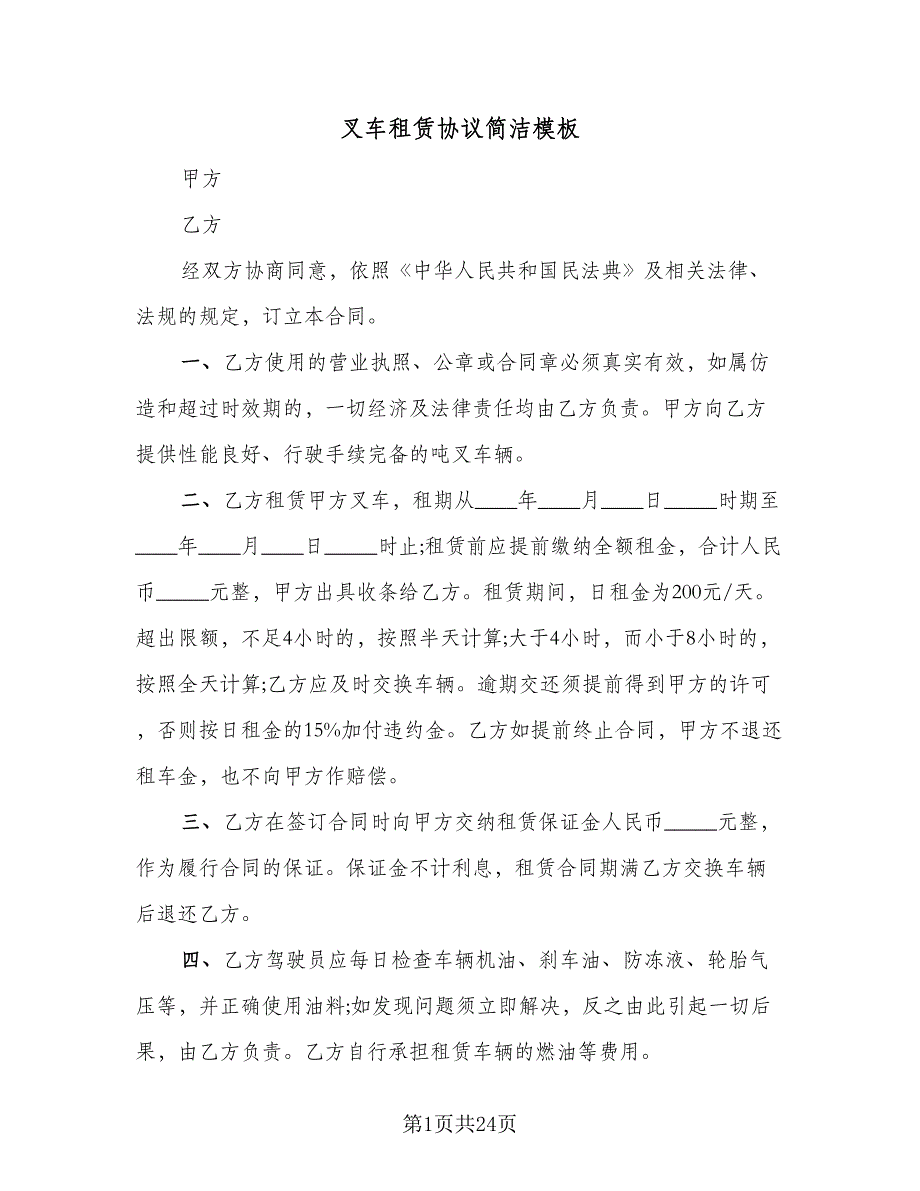 叉车租赁协议简洁模板
甲方
乙方
经双方协商同意，依照《中华人民共和国民法典》及相关法律、
法规的规定，订立本合同。
一、乙方使用的营业执照、公章或合同章必须真实有效，如属仿
造和超过时效期的，一切经济及法律责任均由乙方负责。甲方向乙方
提供性能良好、行驶手续完备的吨叉车辆。
二、乙方租赁甲方叉车，租期从____年____月____日_____时期至
____年____月____日_____时止;租赁前应提前缴纳全额租金，合计人民
币_____元整，甲方出具收条给乙方。租赁期间，日租金为200元/天。
超出限额，不足4小时的，按照半天计算;大于4小时，而小于8小时的，
按照全天计算;乙方应及时交换车辆。逾期交还须提前得到甲方的许可
，否则按日租金的15%加付违约金。乙方如提前终止合同，甲方不退还
租车金，也不向甲方作赔偿。
三、乙方在签订合同时向甲方交纳租赁保证金人民币_____元整，
作为履行合同的保证。保证金不计利息，租赁合同期满乙方交换车辆
后退还乙方。
四、乙方驾驶员应每日检查车辆机油、刹车油、防冻液、轮胎气
压等，并正确使用油料;如发现问题须立即解决，反之由此引起一切后
果，由乙方负责。乙方自行承担租赁车辆的燃油等费用。
第1页共24页